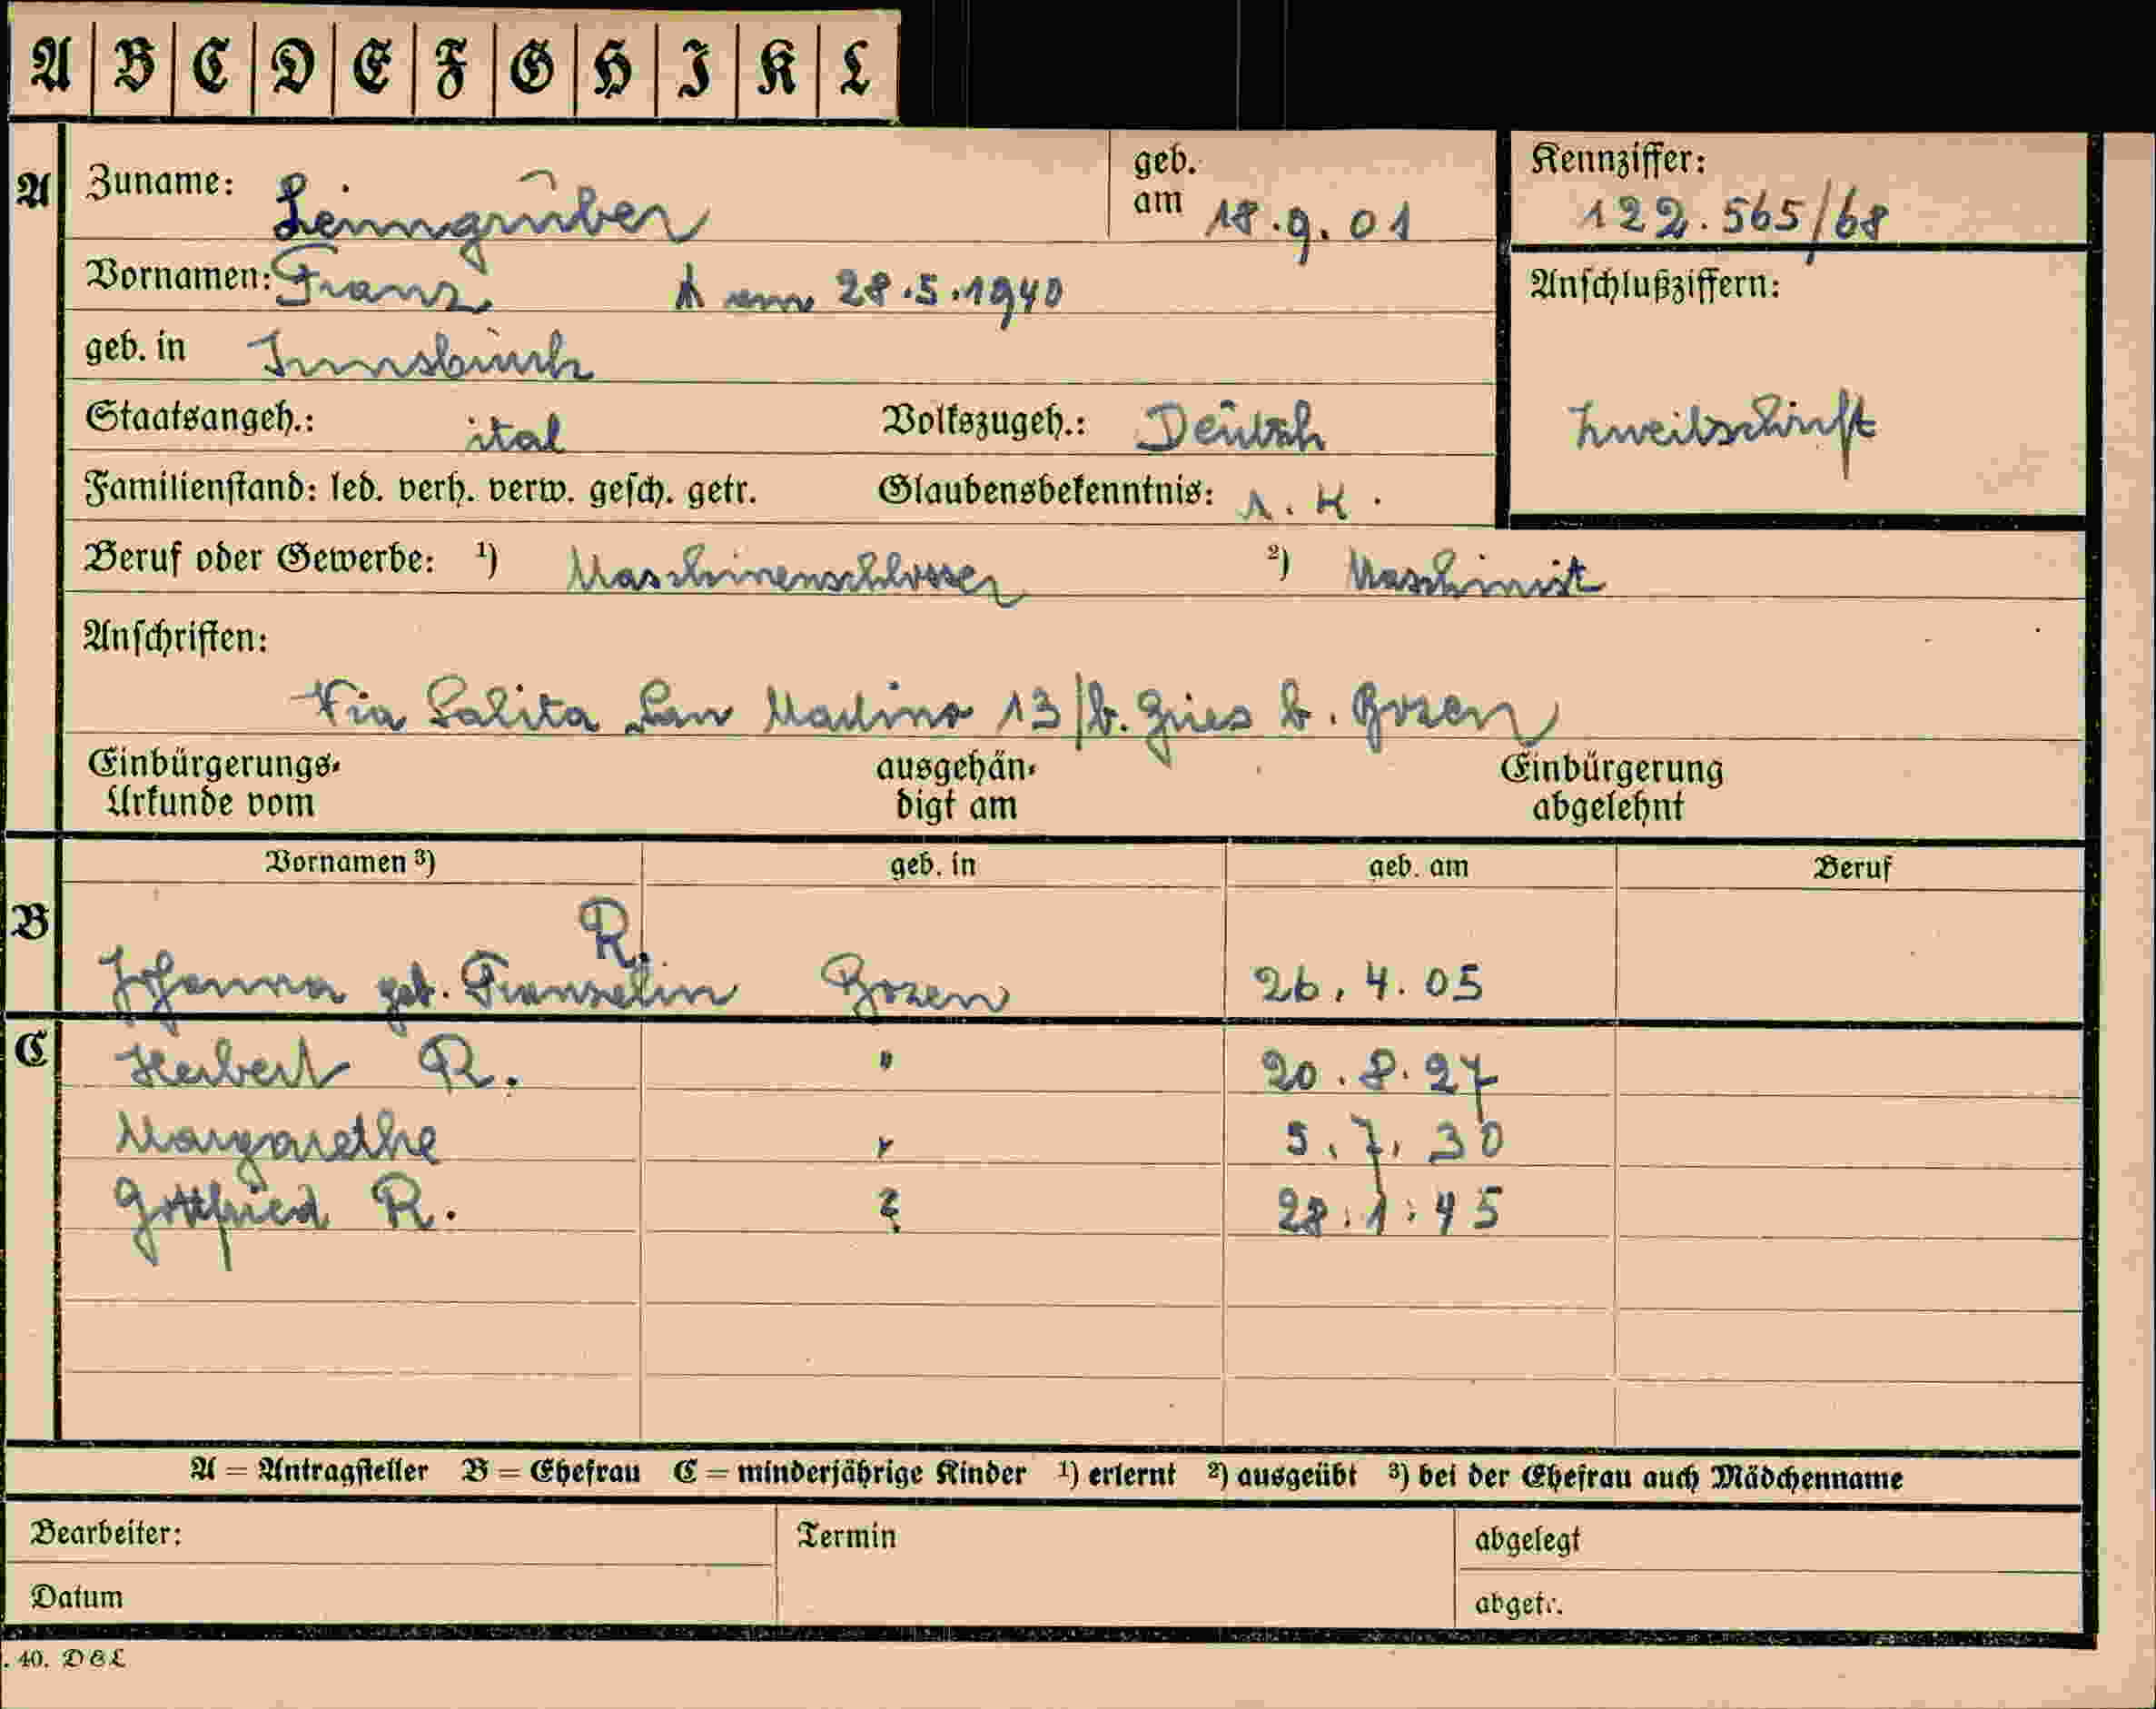 A B C D E F G H I K L
A Zuname: Leimgruber geb. am 18.9.01 Kennziffer: 122.565/68
Vornamen: Franz am 28.5.1940 Anschlußziffern:
geb. in Innsbruck
Staatsangeh.: ital Volkszugeh.: Deutsch Zweitschrift
Familienstand: led. verh. verw. gesch. getr. Glaubensbekenntnis: K.
Beruf oder Gewerbe: 1) Maschinenschlosser 2) Maschinist
Anschriften:
Via Salita San Martino 13/b. Gries b. Bozen
Einbürgerungs- ausgehän- Einbürgerung
Urkunde vom digt am abgelehnt
Vornamen 3) geb. in geb. am Beruf
B R.
Johanna geb. Franzelin Bozen 26.4.05
C Herbert R. " 20.8.27
Margarethe " 5.7.30
Gottfried R. ? 28.1.45
A = Antragsteller B = Ehefrau C = minderjährige Kinder 1) erlernt 2) ausgeübt 3) bei der Ehefrau auch Mädchenname
Bearbeiter: Termin abgelegt
Datum abgetr.
. 40. D&L